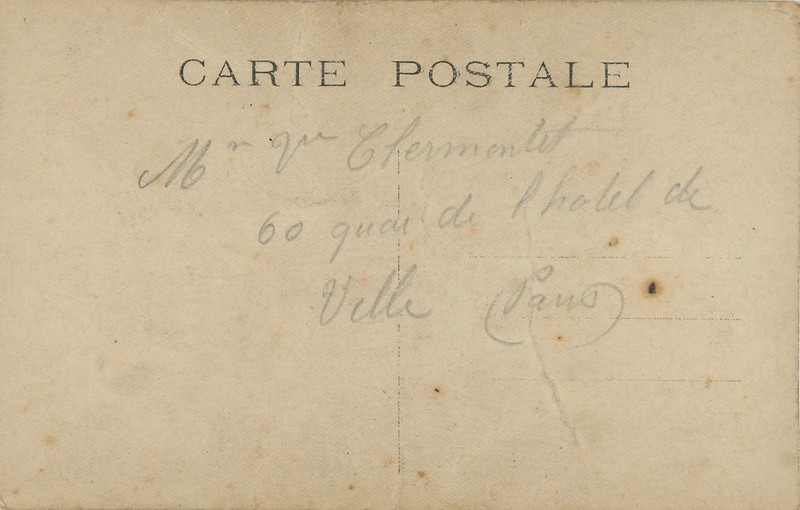 CARTE POSTALE
Mr Clermontet
60 quai de l'hotel de
Ville (Paris)